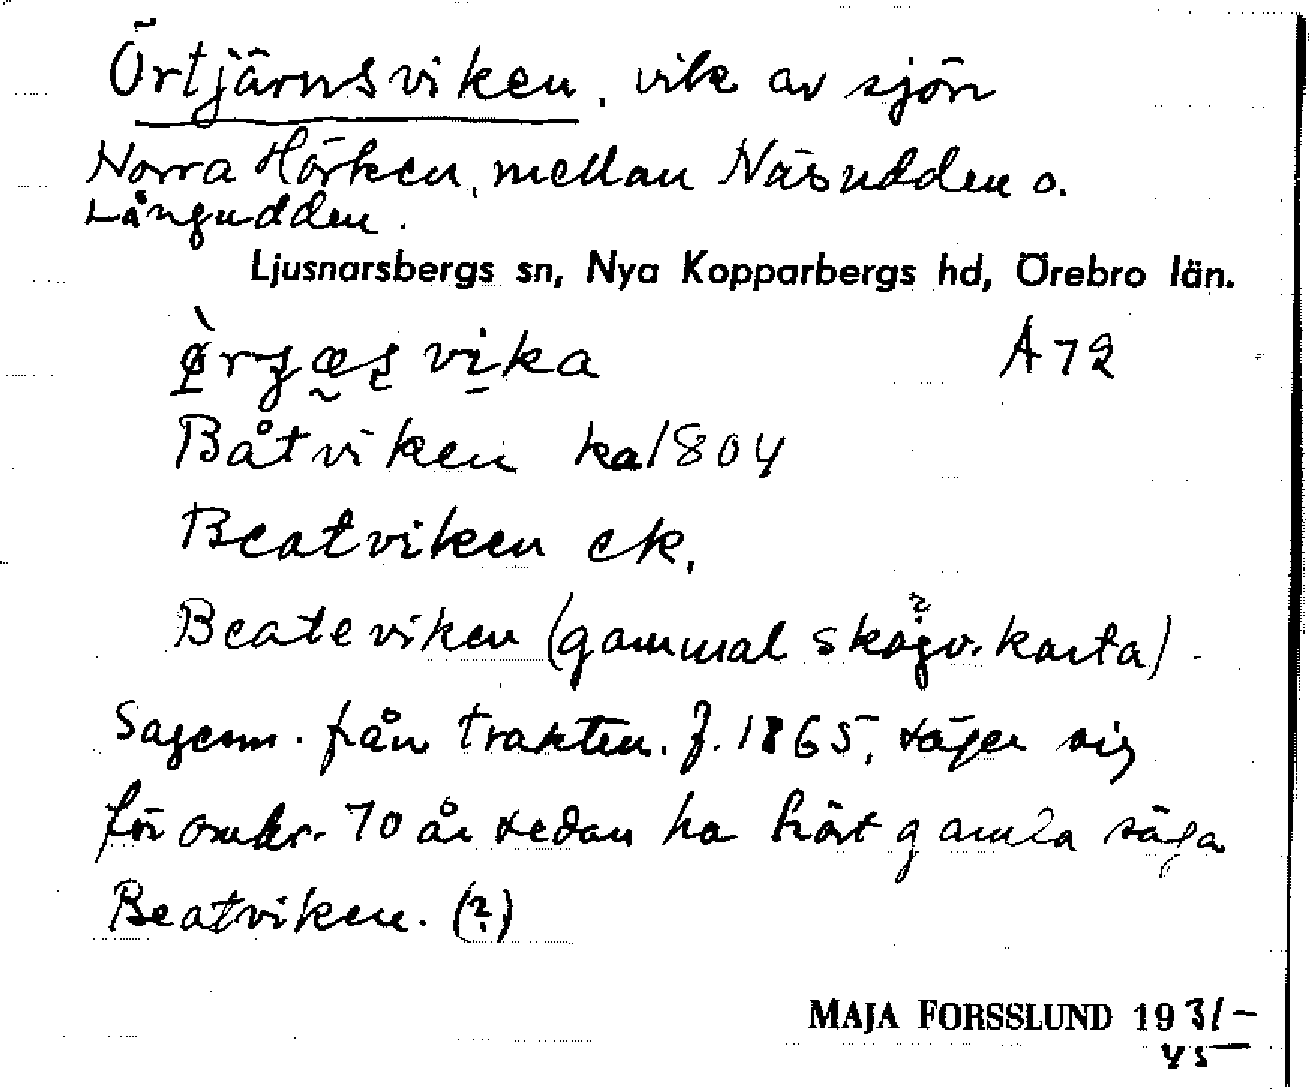 Örtjärnsviken, vik av sjön
Norra Hörken, mellan Näsudden o.
Långudden.
Ljusnarsbergs sn, Nya Kopparbergs hd, Örebro län.
vika A 72
Båtviken ka 1804
Beatviken ek.
Beateviken (gammal skogv. karta)
Sagesm. från trakten. f. 1865, säger sig
för omkr. 70 år sedan ha hört gamla säga
Beatviken. (?)
MAJA FORSSLUND 1931–
45